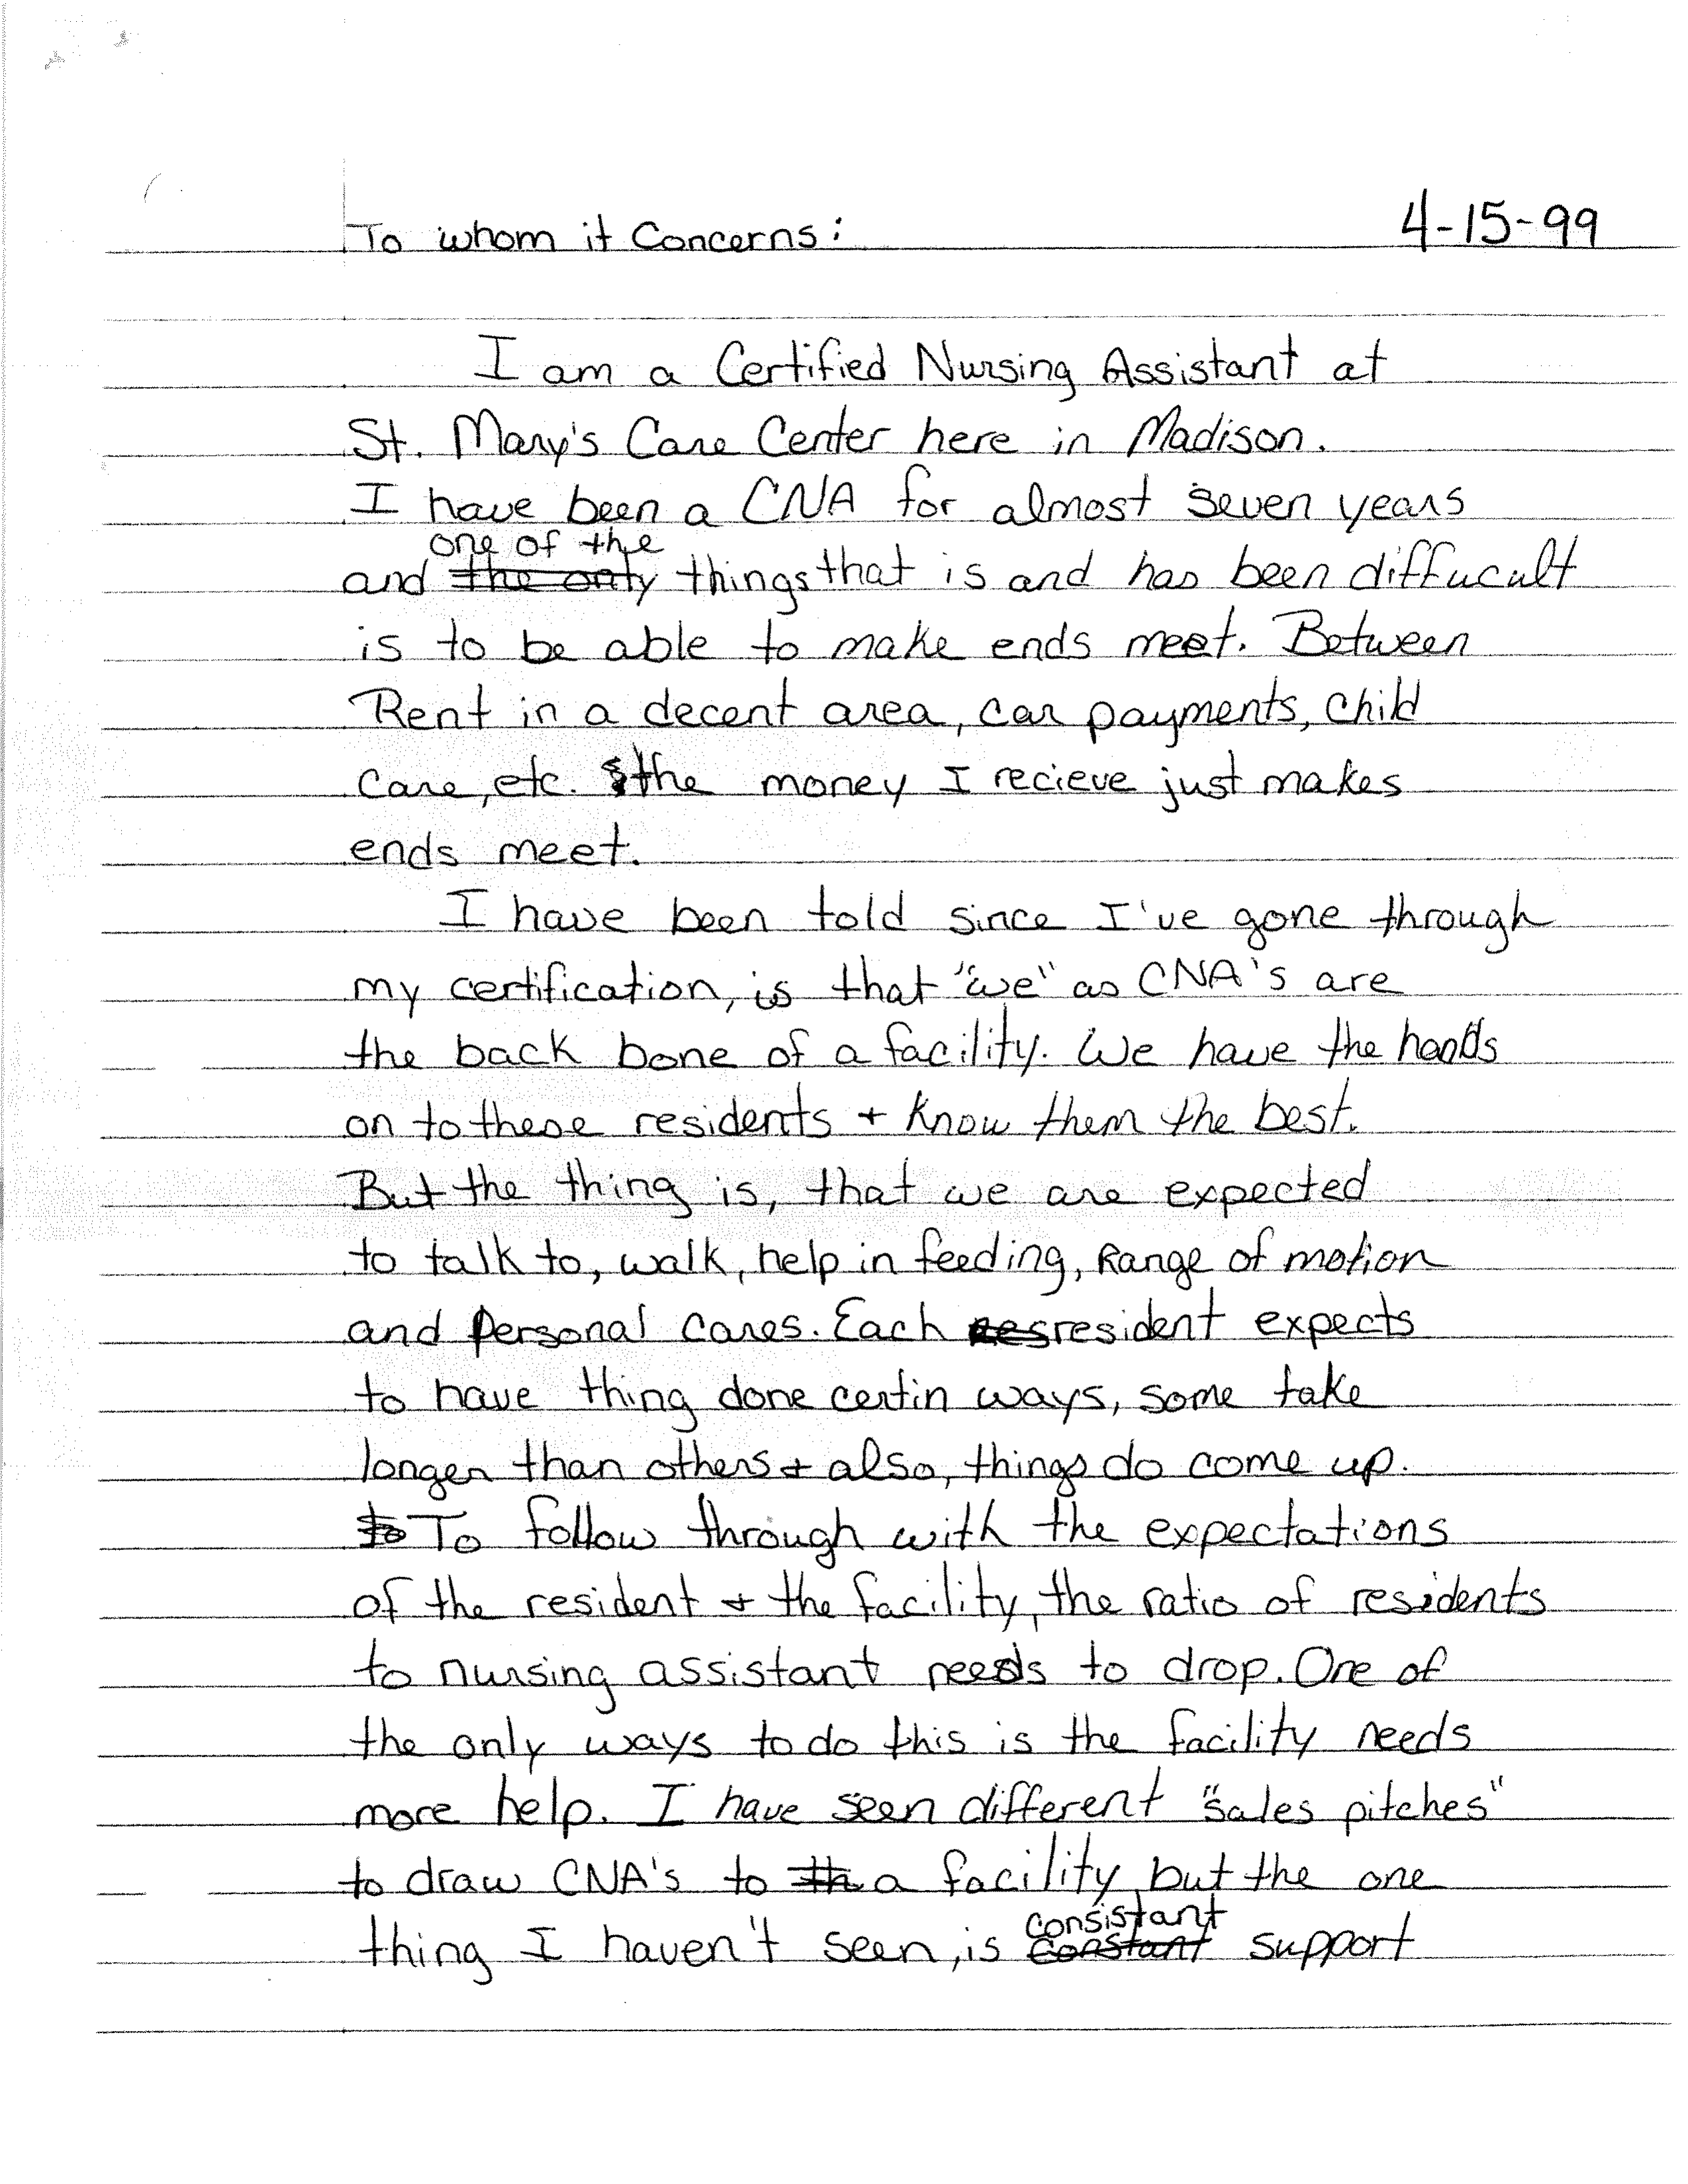 To whom it Concerns: 4-15-99
I am a Certified Nursing Assistant at
St. Mary's Care Center here in Madison.
I have been a CNA for almost seven years
one of the
and the only things that is and has been diffucult
is to be able to make ends meet. Between
Rent in a decent area, car payments, child
care, etc. the money I recieve just makes
ends meet.
I have been told since I've gone through
my certification, is that "we" as CNA's are
the back bone of a facility. We have the hands
on to these residents + know them the best.
But the thing is, that we are expected
to talk to, walk, help in feeding, Range of motion
and personal cares. Each res resident expects
to have thing done certin ways, some take
longer than others + also, things do come up.
to To follow through with the expectations
of the resident + the facility, the ratio of residents
to nursing assistant needs to drop. One of
the only ways to do this is the facility needs
more help. I have seen different "sales pitches"
to draw CNA's to th a facility, but the one
consistant
thing I haven't seen, is constant support